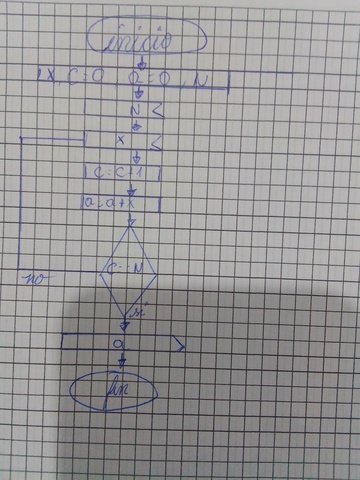 inicio
X, C=0 a=0, N
N
X
C=C+1
a=a+x
C==N
no
si
a
fin